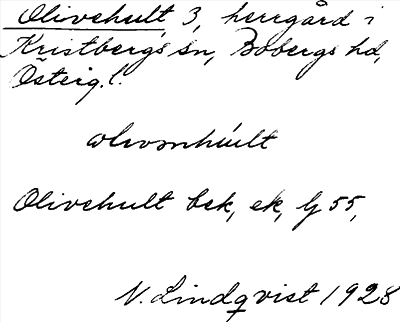 Olivehult 3, herrgård i
Kristbergs sn, Bobergs hd,
Österg. l.
olivmhúlt
Olivehult bek, ek, bg 55,
N. Lindqvist 1928